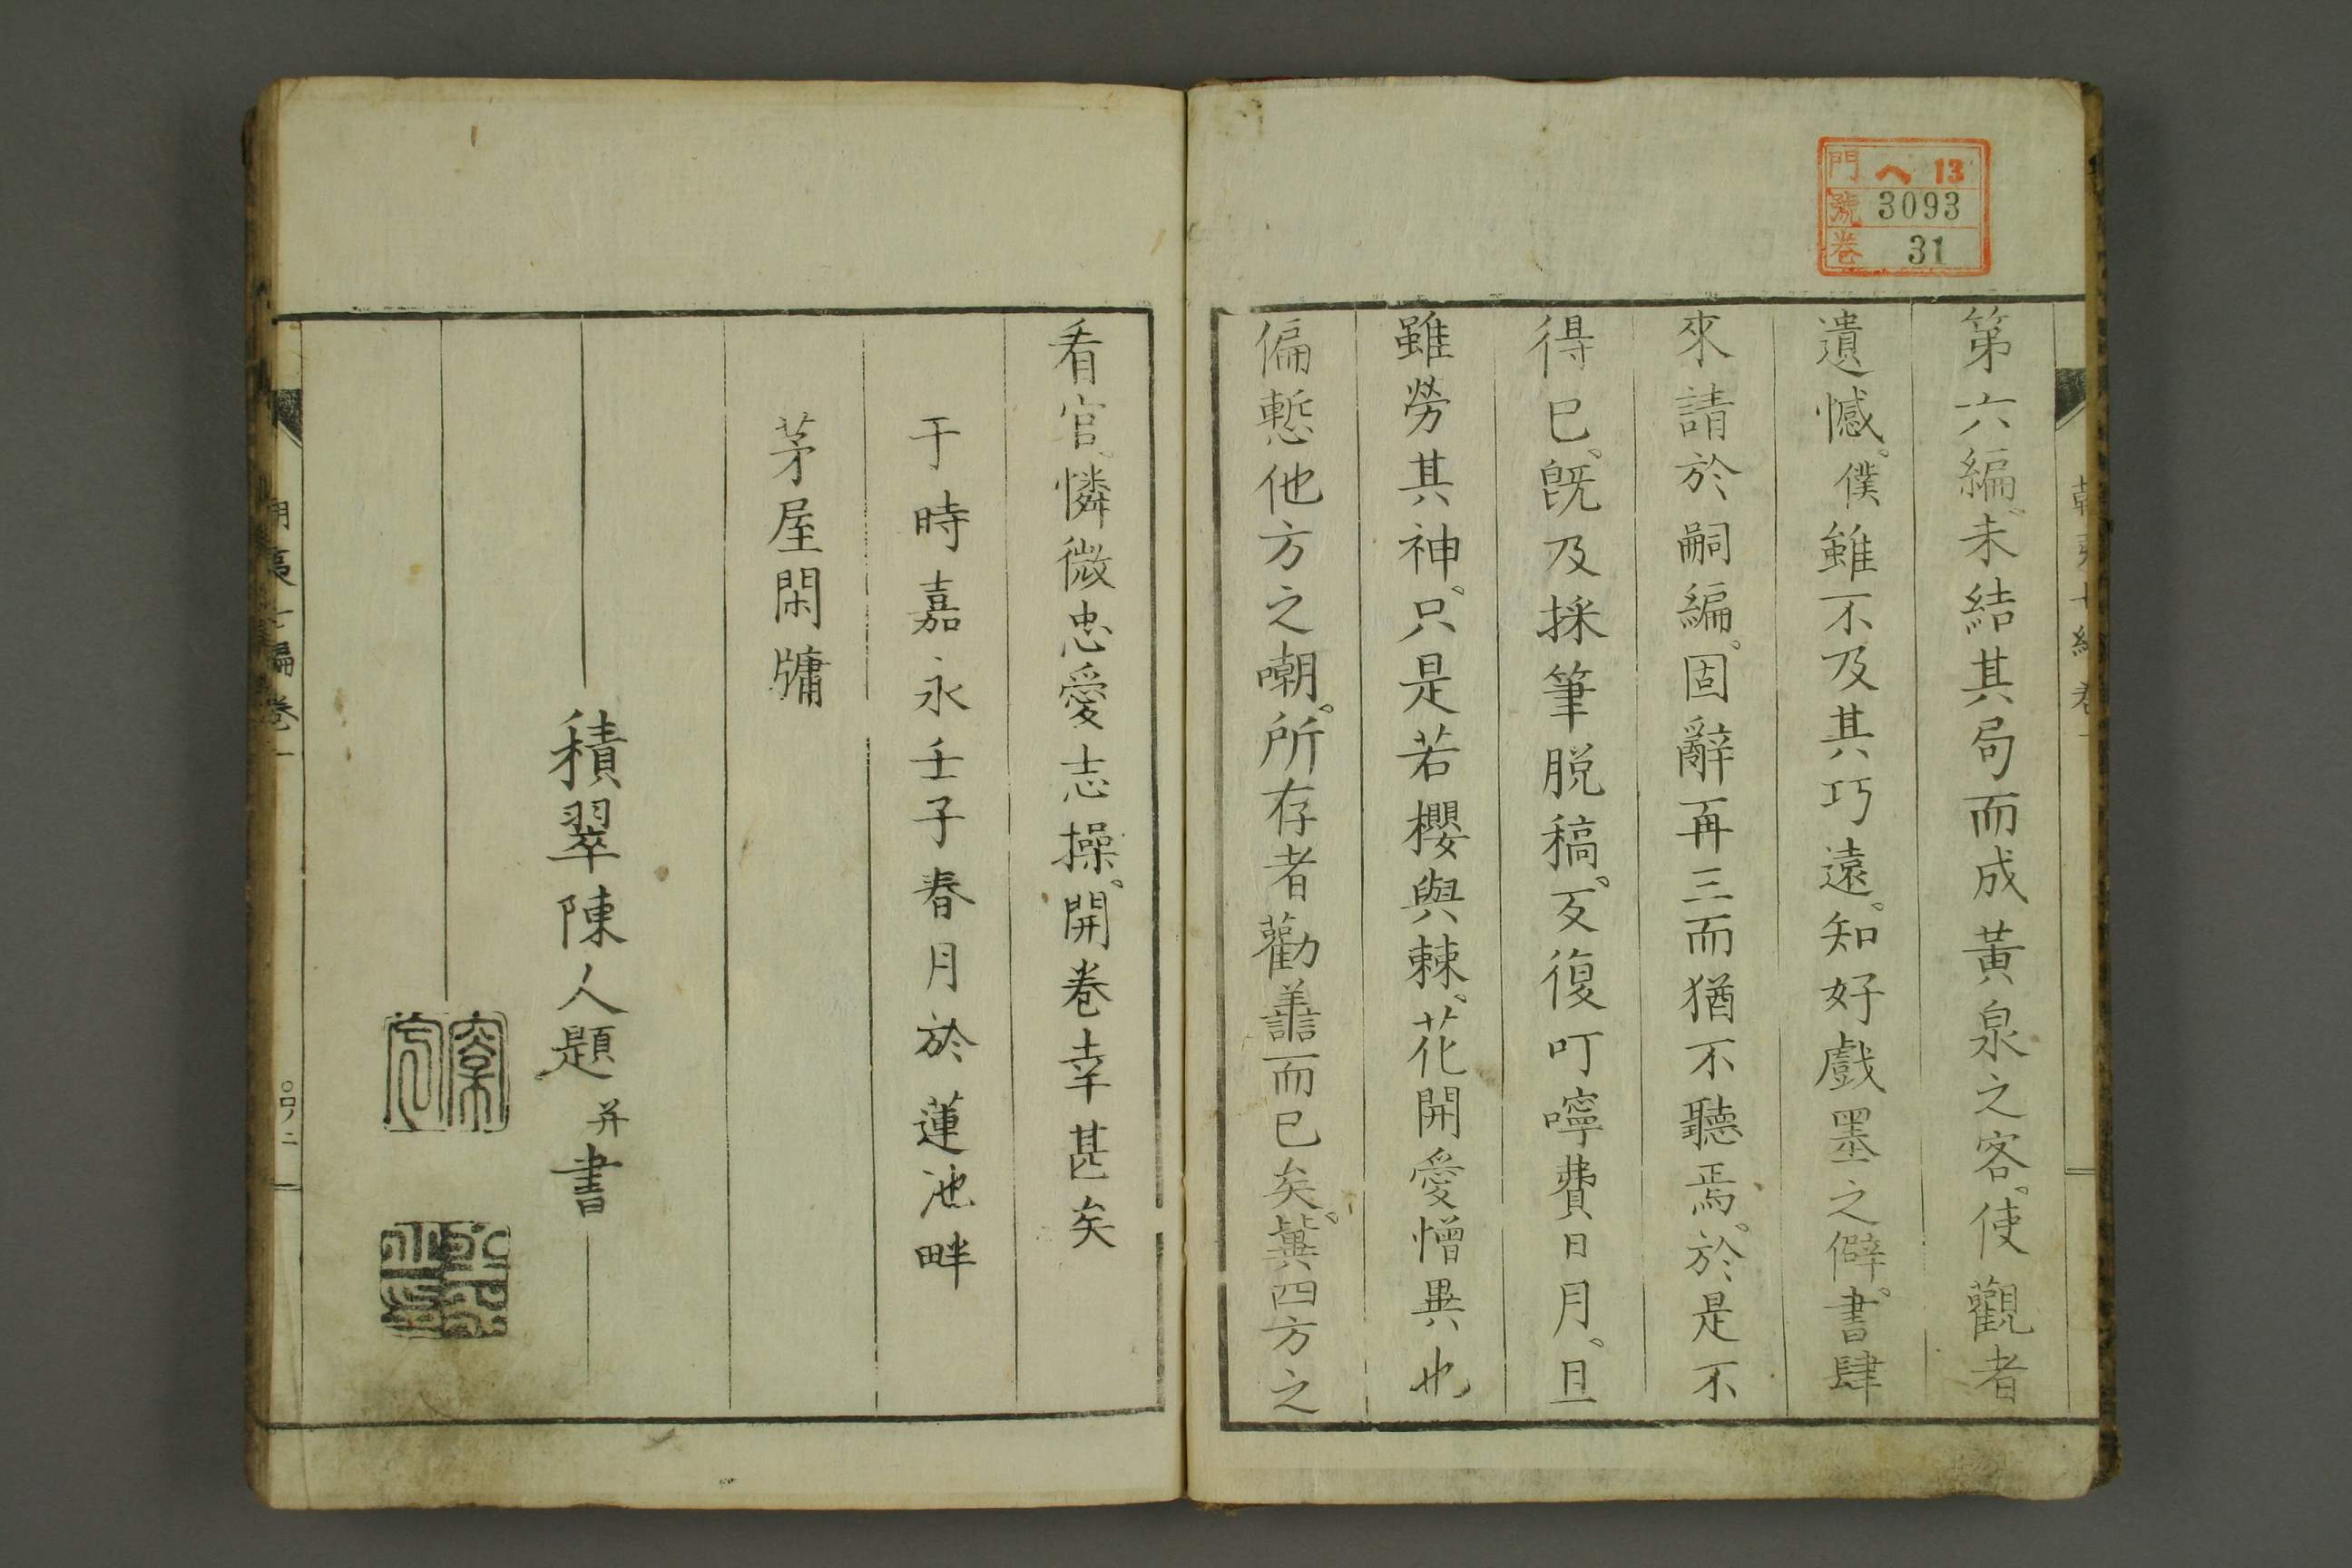 門 へ 13
號 3093
卷 31
第六編。未結其局而成黃泉之客。使觀者
遺憾。僕雖不及其巧遠。知好戲墨之僻。書肆
來請於嗣編。固辭再三而猶不聽焉。於是不
得已。既及採筆脱稿。亙復叮嚀費日月。且
雖勞其神。只是若櫻與棘。花開愛憎異也
偏慙他方之嘲。所存者勸譱而已矣。冀四方之
看官。憐微忠愛志操。開卷幸甚矣
于時嘉永壬子春月於蓮池畔
茅屋閑牗
積翠陳人題并書
朝夷七編卷一